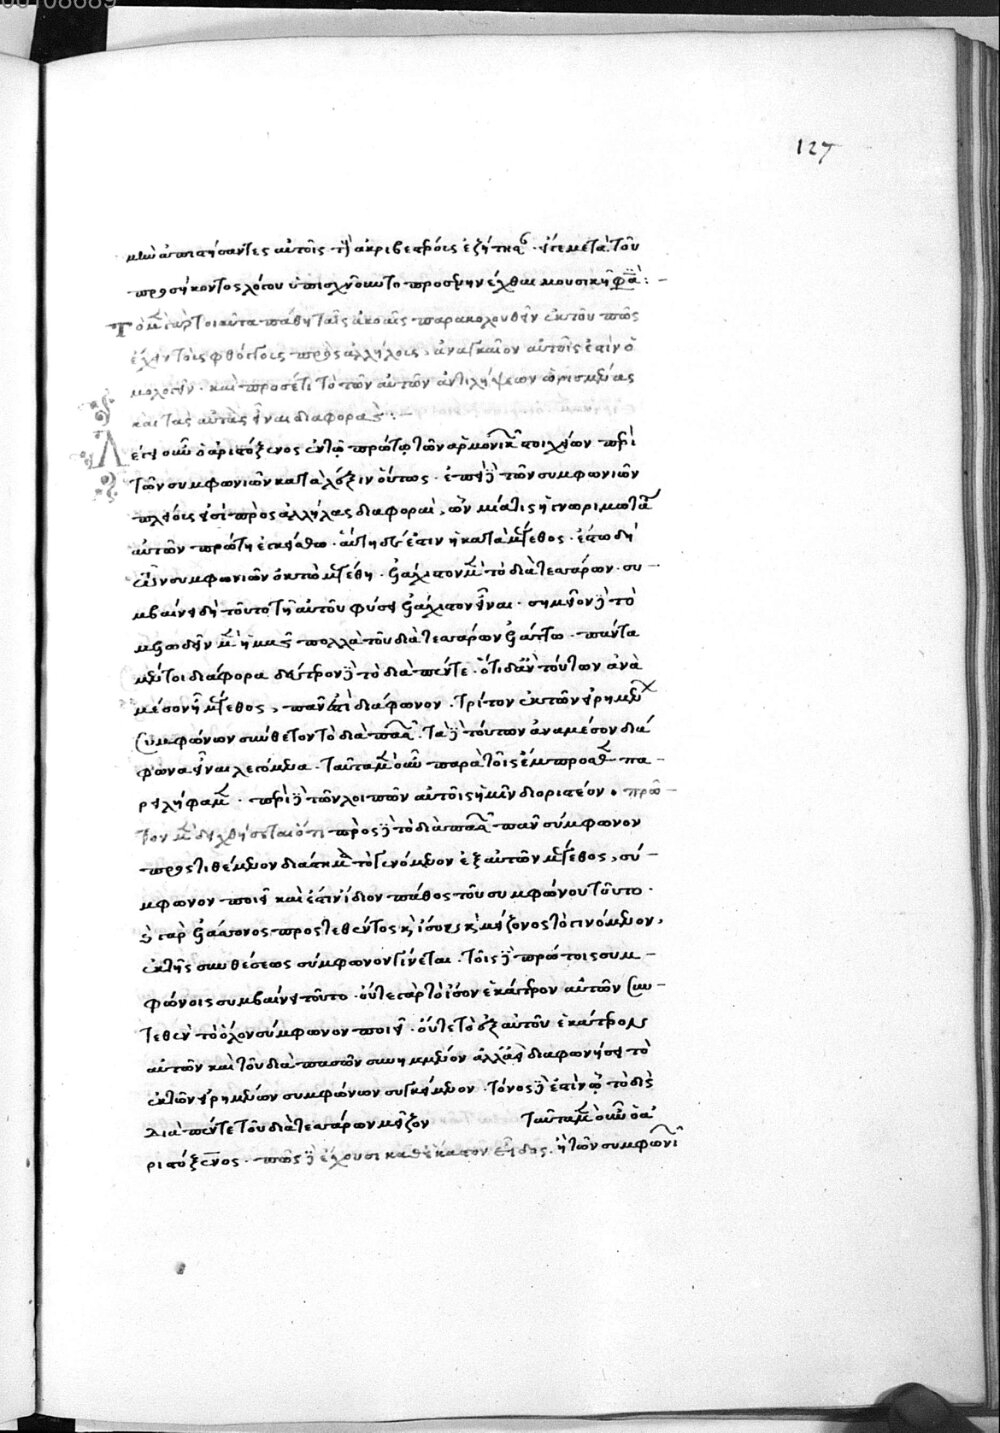 127
μὲν ἀπιστήσαντες αὐτοῖς τῇ ἀκριβεστέροις ἐζήτησ· ἥ γε μετὰ τοῦ
προσήκοντος λόγου ὑπισχνοῦντο προσενηνέχθαι μουσικῇ φα:
Τὸ μὲν γὰρ τοιαῦτα πάθη ταῖς ἀκοαῖς παρακολουθεῖν ἐκ τοῦ πῶς
ἔχειν τοῖς φθόγγοις πρὸς ἀλλήλοις, ἀναγκαῖον αὐτοῖς ἐστὶν ὁ
μολογεῖν· καὶ προσέτι τὸ τῶν αὐτῶν ἀντιλήψεων ὡρισμένας
καὶ τὰς αὐτὰς εἶναι διαφοράς:
Λέγει οὖν ὁ ἀριστόξενος ἐν τῷ πρώτῳ τῶν ἁρμονικῶν στοιχείων περὶ
τῶν συμφωνιῶν κατὰ λέξιν οὕτως· ἐπεὶ δὲ τῶν συμφωνιῶν
πλείοις εἰσὶ πρὸς ἀλλήλας διαφοραὶ, ὧν μία τις ἡ γνωριμωτάτη
αὐτῶν πρώτη ἐκκείσθω· αὕτη δέ ἐστιν ἡ κατὰ μέγεθος· ἔστω δὴ
τῶν συμφωνιῶν ὀκτὼ μεγέθη· ἐλάχιστον μὲν τὸ διὰ τεσσάρων· συ
μβαίνει δὴ τοῦτο τῇ αὐτοῦ φύσει ἐλάχιστον εἶναι· σημεῖον δὲ τὸ
μελωδεῖν μὲν ἡμᾶς πολλὰ τοῦ διὰ τεσσάρων ἐλάττω· πάντα
μέντοι διάφορα δεύτερον δὲ τὸ διὰ πέντε· ὅτι δ' ἂν τούτων ἀνὰ
μέσον ᾖ μέγεθος, πᾶν ἐστὶ διάφωνον· τρίτον ἐκ τῶν εἰρημένων
συμφώνων σύνθετον τὸ διὰ πασῶν· τὰ δὲ τούτων ἀναμέσον διά
φωνα εἶναι λεγόμενα· ταῦτα μὲν οὖν παρὰ τοῖς ἔμπροσθεν πα
ρειλήφαμεν· περὶ δὲ τῶν λοιπῶν αὐτοῖς ἡμῖν διοριστέον· πρῶ
τον μὲν δειχθήσεται ὅτι πρὸς δὲ τὸ διὰ πασῶν πᾶν σύμφωνον
προστιθέμενον διάστημα τὸ γενόμενον ἐξ αὐτῶν μέγεθος, σύ
μφωνον ποιεῖ καὶ ἔστιν ἴδιον πάθος τοῦ συμφώνου τοῦτο·
ἢ γὰρ ἐλάσσονος προστεθέντος καὶ ἴσου καὶ μείζονος τὸ γινόμενον,
ἐκ τῆς συνθέσεως σύμφωνον γίνεται· τοῖς δὲ πρώτοις συμ
φώνοις συμβαίνει τοῦτο· οὔτε γὰρ τὸ ἴσον ἑκάτερον αὐτῶν συν
τεθὲν τὸ ὅλον σύμφωνον ποιεῖ· οὔτε τὸ ἐξ αὐτοῦ ἑκάτερον
αὐτῶν καὶ τοῦ διὰ πασῶν συνημμένον ἀλλ' ἀεὶ διαφωνήσει τὸ
ἐκ τῶν εἰρημένων συμφώνων συγκείμενον· τόνος δὲ ἐστὶν ᾧ τὸ δὶς
διὰ πέντε τοῦ διὰ τεσσάρων μεῖζον ταῦτα μὲν οὖν ὁ ἀ
ριστόξενος· πῶς δὲ ἔχουσι καθ' ἕκαστον εἶδος· ἢ τῶν συμφωνι